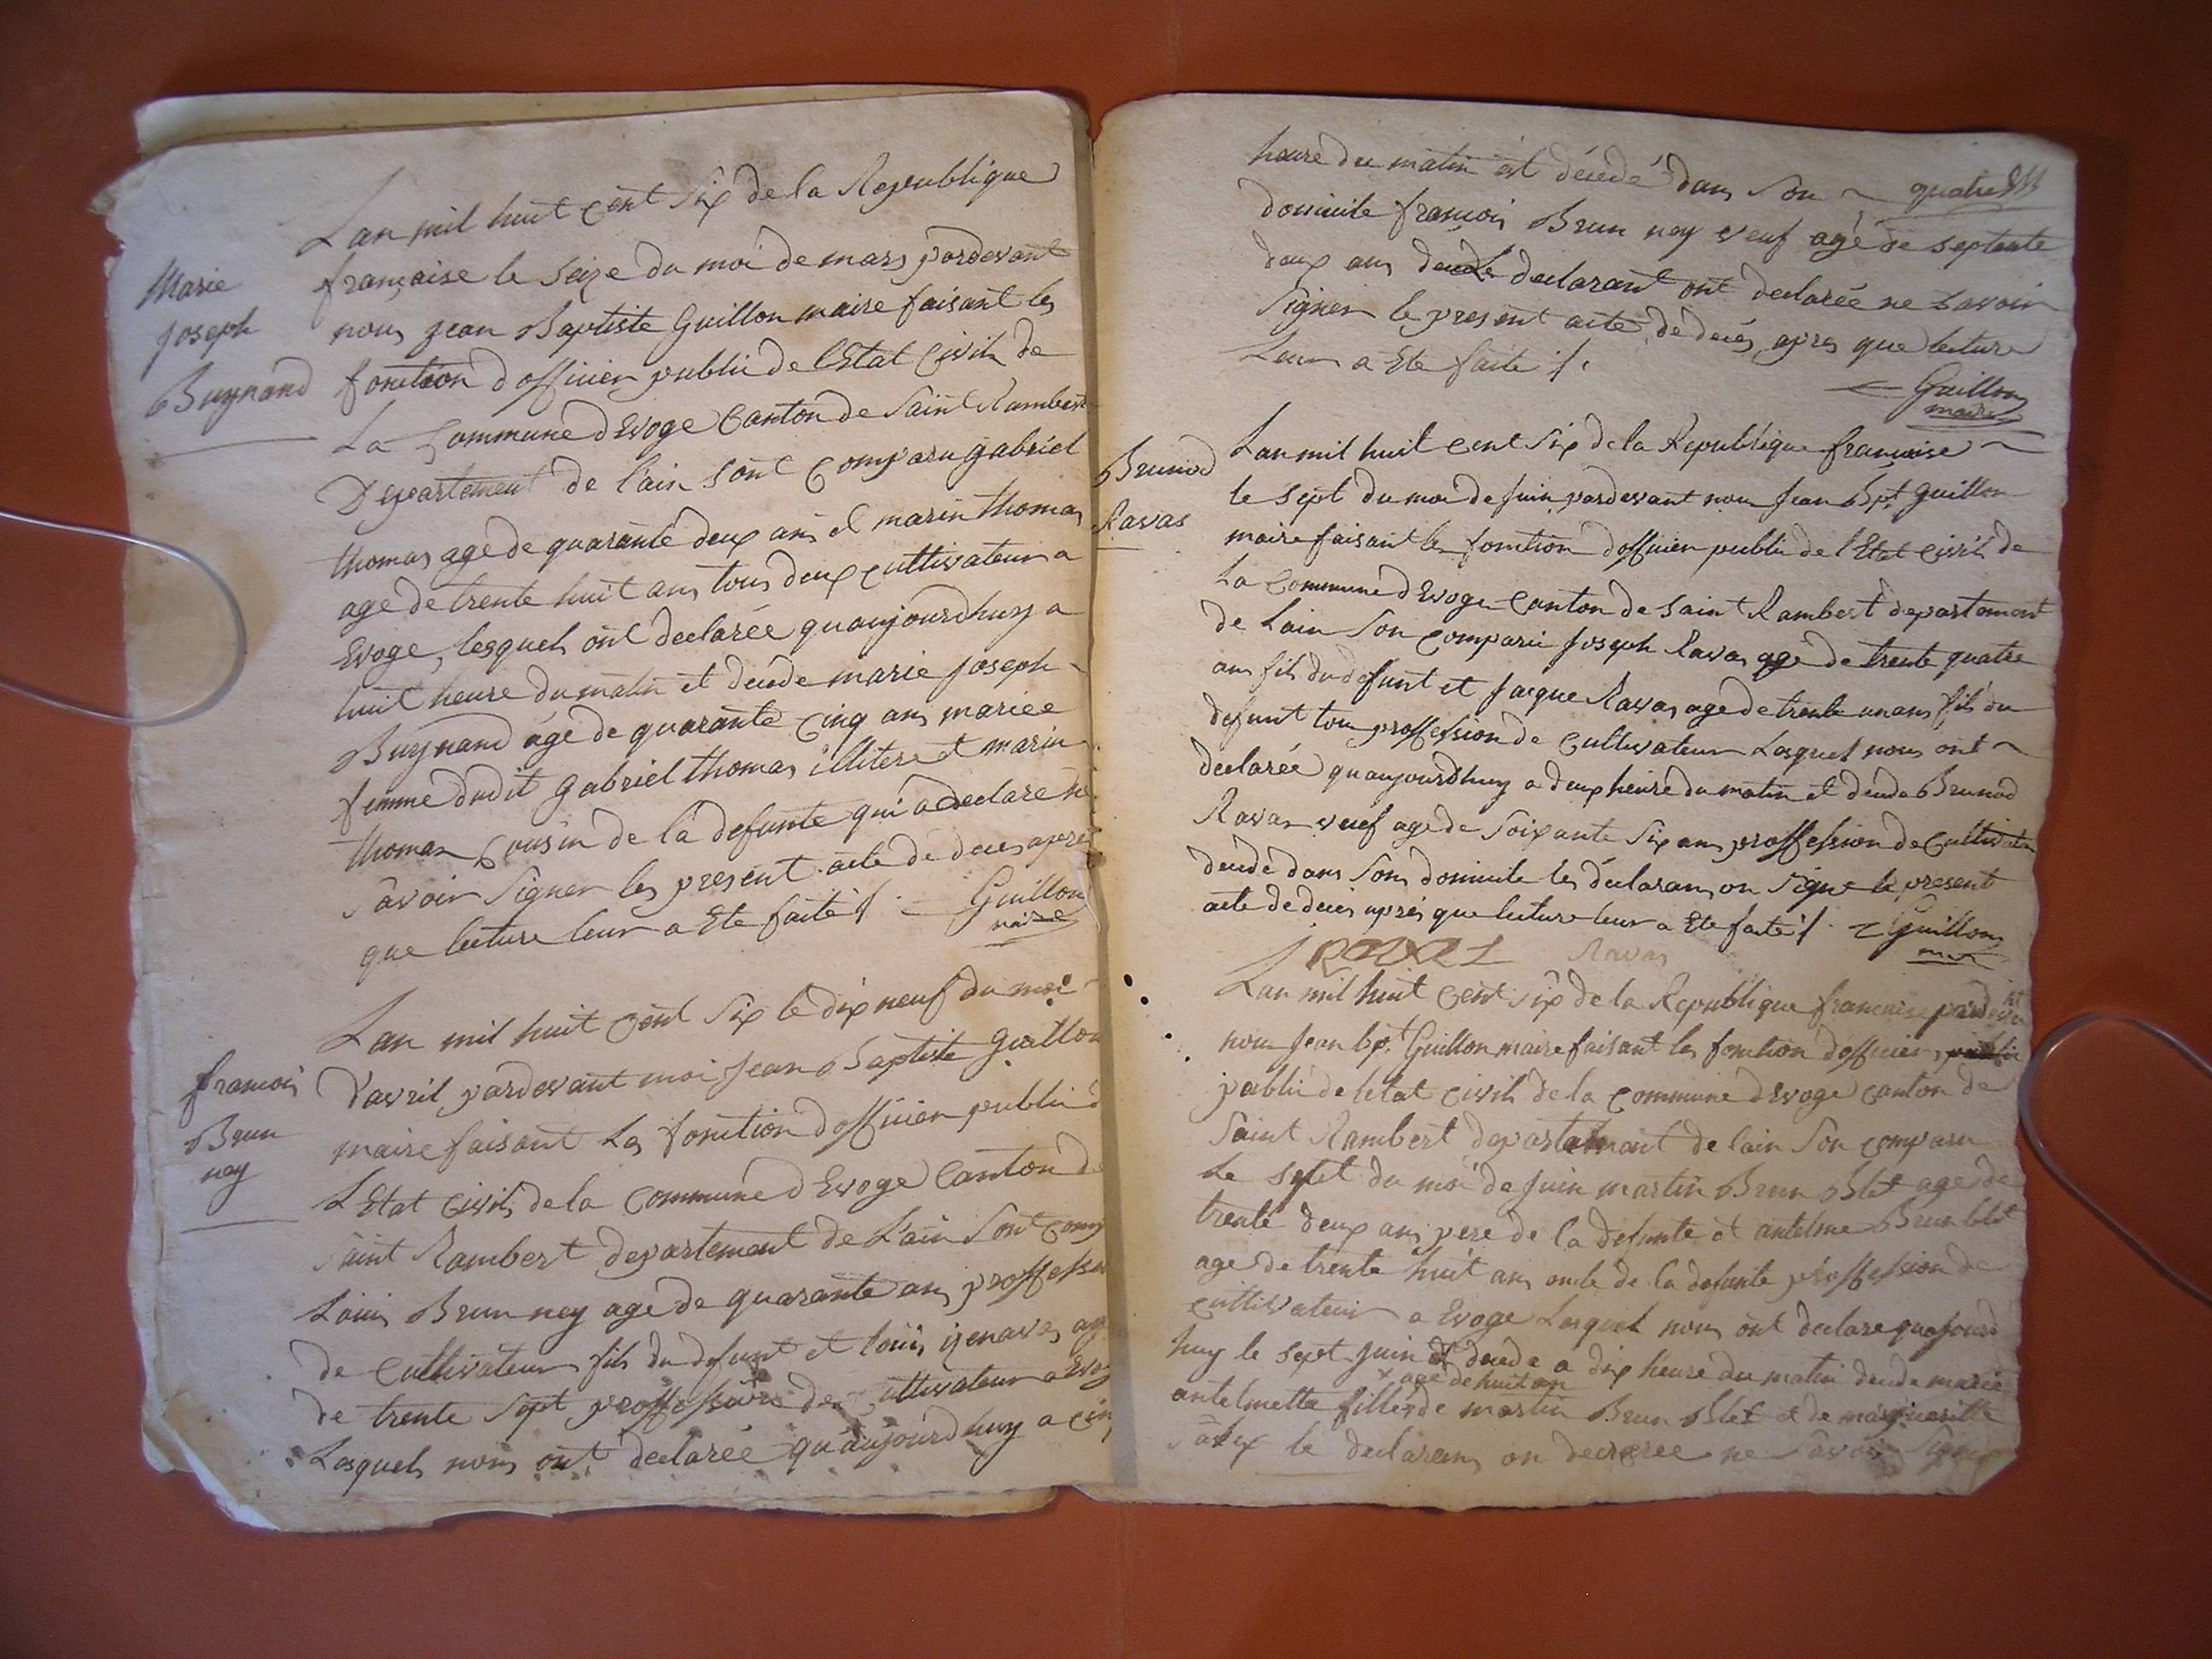 Marie
Joseph
Buynand
Lan mil huit cent six de la Republique
française le seize du moi de mars pardevant
nous jean Baptiste Guillon maire faisant les
fonction d officier public de l Etat Civil de
La Commune d Evoge Canton de Saint Rambert
Departement de l'ain sont comparu gabriel
thomas age de quarante deux ans et marin thomas
age de trente huit ans tous deux cultivateur a
Evoge, lesquels ont declarée quaujourdhuy a
huit heure du matin et decede marie joseph
Buynand âgé de quarante cinq ans mariee
femme dudit gabriel thomas illitere et marin
thomas cousin de la defunte qui a declare ne
savoir signer les present acte de deces apres
que lecture leur a Ete faite /. Guillon
maire
francois
Brun
ney
Lan mil huit cent six le dix neuf du moi
d'avril pardevant moi jean Baptiste Guillon
maire faisant les fonction d officier public d
L Etat civil de la commune d Evoge Canton de
Saint Rambert departement de L'ain Sont comp
Louis Brun ney age de quarante ans proffessi
de cultivateur fils du defunt et louis age
de trente sept proffession de cultivateur a Evog
Lesquels nous ont declarée quaujourdhuy a cin
heure du matin est décedé dans son ~ quatre
domicile francois Brun ney veuf agé de septente
deux ans declarant ont declarée ne savoir
signer le present acte de deces apres que lecture
Leur a Ete faite /.
Guillon
maire
Brunod
Ravas
Lan mil huit cent six de la Republique francaise ~
le sept du moi de juin pardevant nous Jean Bpt Guillon
maire faisant les fonction d officier public de l Etat civil de
La commune d Evoge canton de saint Rambert departement
de Lain son comparu joseph Ravas age de trente quatre
ans fils du defunt et jacque Ravas age de trente un ans fils du
defunt tous proffession de cultivateur Lesquel nous ont ~
declarée quaujourdhuy a deux heure du matin et decede Brunod
Ravas veuf age de soixante six ans proffession de cultivateur
decede dans son domicile les declarans on signe le present
acte de deces après que lecture leur a Ete faite /. Guillon
Ravas
Lan mil huit cent six de la Republique francaise pardevant
nous jean bpt Guillon maire faisant les fonction d officier public
public de letat civil de la commune d Evoge canton de
Saint Rambert departemant de lain son comparu
Le septet du moi de juin martin Brun Blet age de
trente deux ans pere de la defunte et antelme Brun blet
age de trente huit ans oncle de la defunte proffession de
cultivateur a Evoge Lesquel nous ont declare quajourd
huy le sept juin et decede a dix heure du matin decede marie
× age de huit an
antelmette fille × de martin Brun Blet et de marguerite
le declarans on declaree ne savoir signer